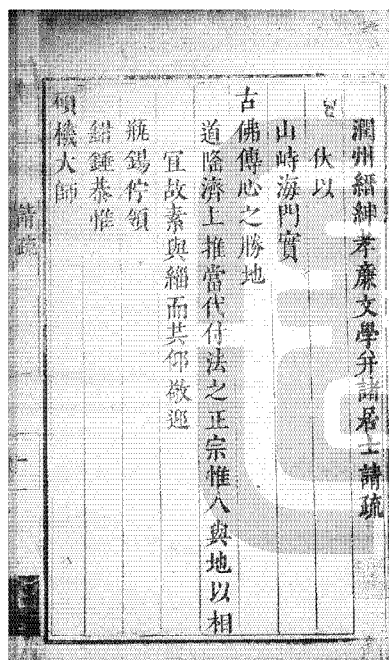 潤州縉紳孝廉文學并諸居士請疏
伏以
山峙海門實
古佛傳心之勝地
道隆濟上推當代付法之正宗惟人與地以相
宜故素與緇而共仰敬迎
瓶錫佇領
鉗錘恭惟
機大師
請疏
一